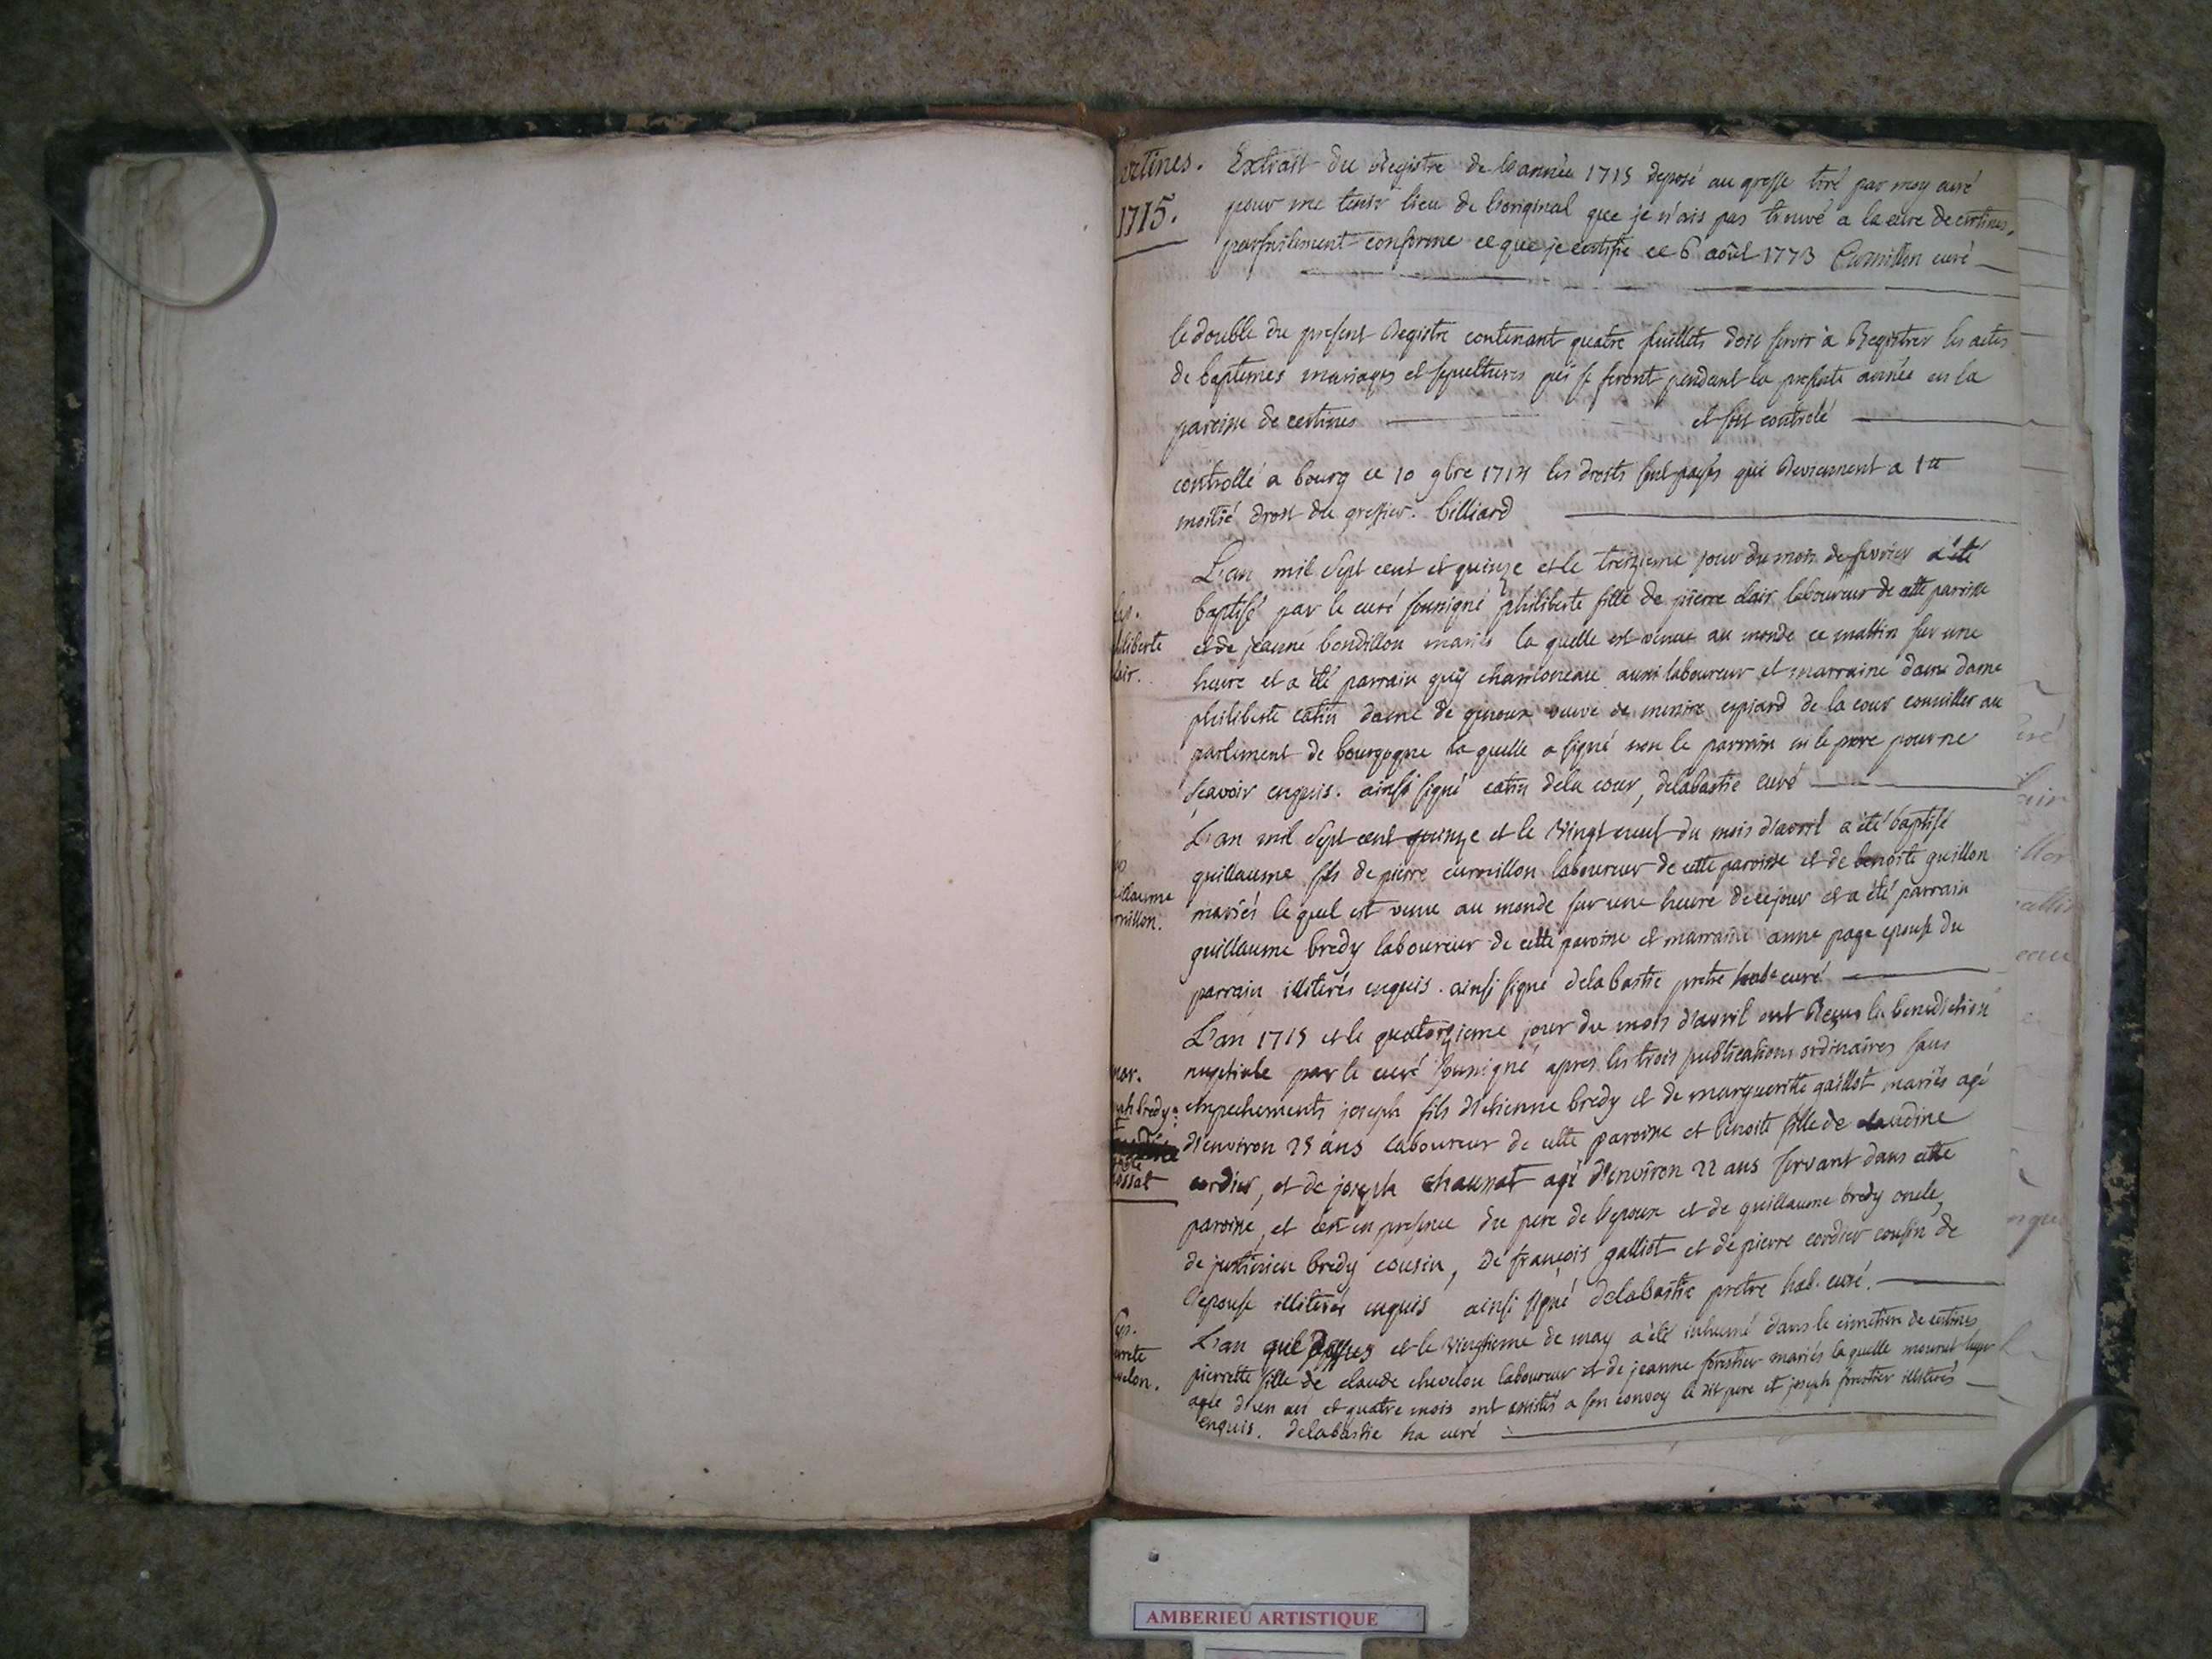 ertines.
1715.
Extrait du Registre de l'année 1715 deposé au greffe tiré par moy curé
pour me tenir lieu de l'original que je n'ais pas trouvé a la cure de certines.
parfaitement conforme ce que je certifie ce 6 août 1773 Curnillon curé
le double du present Registre contenant quatre feuillets doit servir à Registrer les actes
de baptemes mariages et sepultures qui se feront pendant la presente année en la
paroisse de certines et soit controlé
controllé a bourg ce 10 9bre 1714 les droits payés qui Reviennent a 1tt
moitié droit du greffier. billiard
L'an mil sept cent et quinze et le treizieme jour du mois de fevrier a été
baptisé par le curé sousigné philiberte fille de pierre clair laboureur de cette paroisse
et de jeanne bondillon mariés la quelle est venue au monde ce mattin sur une
heure et a été parrain guy charloneau aussi laboureur et marraine dame dame
philiberte catin dame de genoux veuve de messire espiard de la cour conseiller au
parlement de bourgogne la quelle a signé non le parrain ni le pere pour ne
scavoir enquis. ainsi signé catin dela cour, delabastie curé
liberte
air.
L'an mil sept cent quinze et le vingt neuf du mois d'avril a été baptisé
guillaume fils de pierre curnillon laboureur de cette paroisse et de benoite guillon
mariés le quel est venu au monde sur une heure de ce jour et a été parrain
guillaume bredy laboureur de cette paroisse et marraine anne page epouse du
parrain illiterés enquis. ainsi signé delabastie pretre hab. curé
illaume
rnillon.
L'an 1715 et le quatorzieme jour du mois d'avril ont Reçus la benediction
nuptiale par le curé sousigné apres les trois publications ordinaires sans
empechements joseph fils d'etienne bredy et de marguerite gaillot mariés agé
d'environ 25 ans laboureur de cette paroisse et benoite fille de claudine
cordier, et de joseph chaussat agé d'environ 22 ans servant dans cette
paroisse, et c'est en presence du pere de l'epoux et de guillaume bredy oncle,
de bredy cousin, de françois galliot et de pierre cordier cousin de
l'epouse illiterés enquis ainsi signé delabastie pretre hab. curé.
mar.
ph bredy
ossat
L'an et le vingtieme de may a été inhumé dans le cimetiere de certines
pierrette fille de claude chevelon laboureur et de jeanne forestier mariés la quelle mourut hyer
agée d'un an et quatre mois ont assistés a son convoy le dit pere et joseph forestier illiterés
enquis. delabastie ha curé
sep.
errete
velon.
AMBERIEU ARTISTIQUE